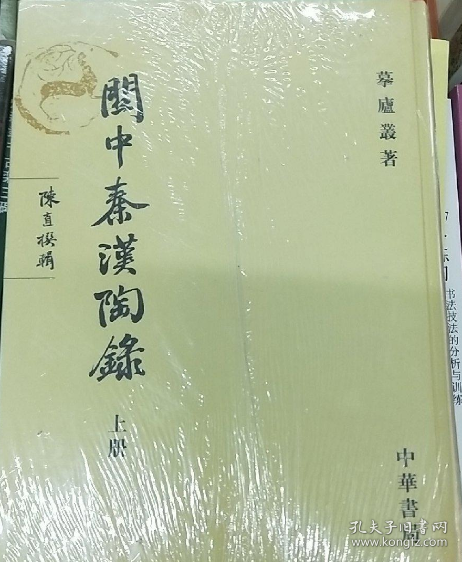 摹廬叢著
關中秦漢陶錄
上册
陳直撰輯
中華書局
书法技法的分析与训练
孔夫子旧书网
www.kongfz.com